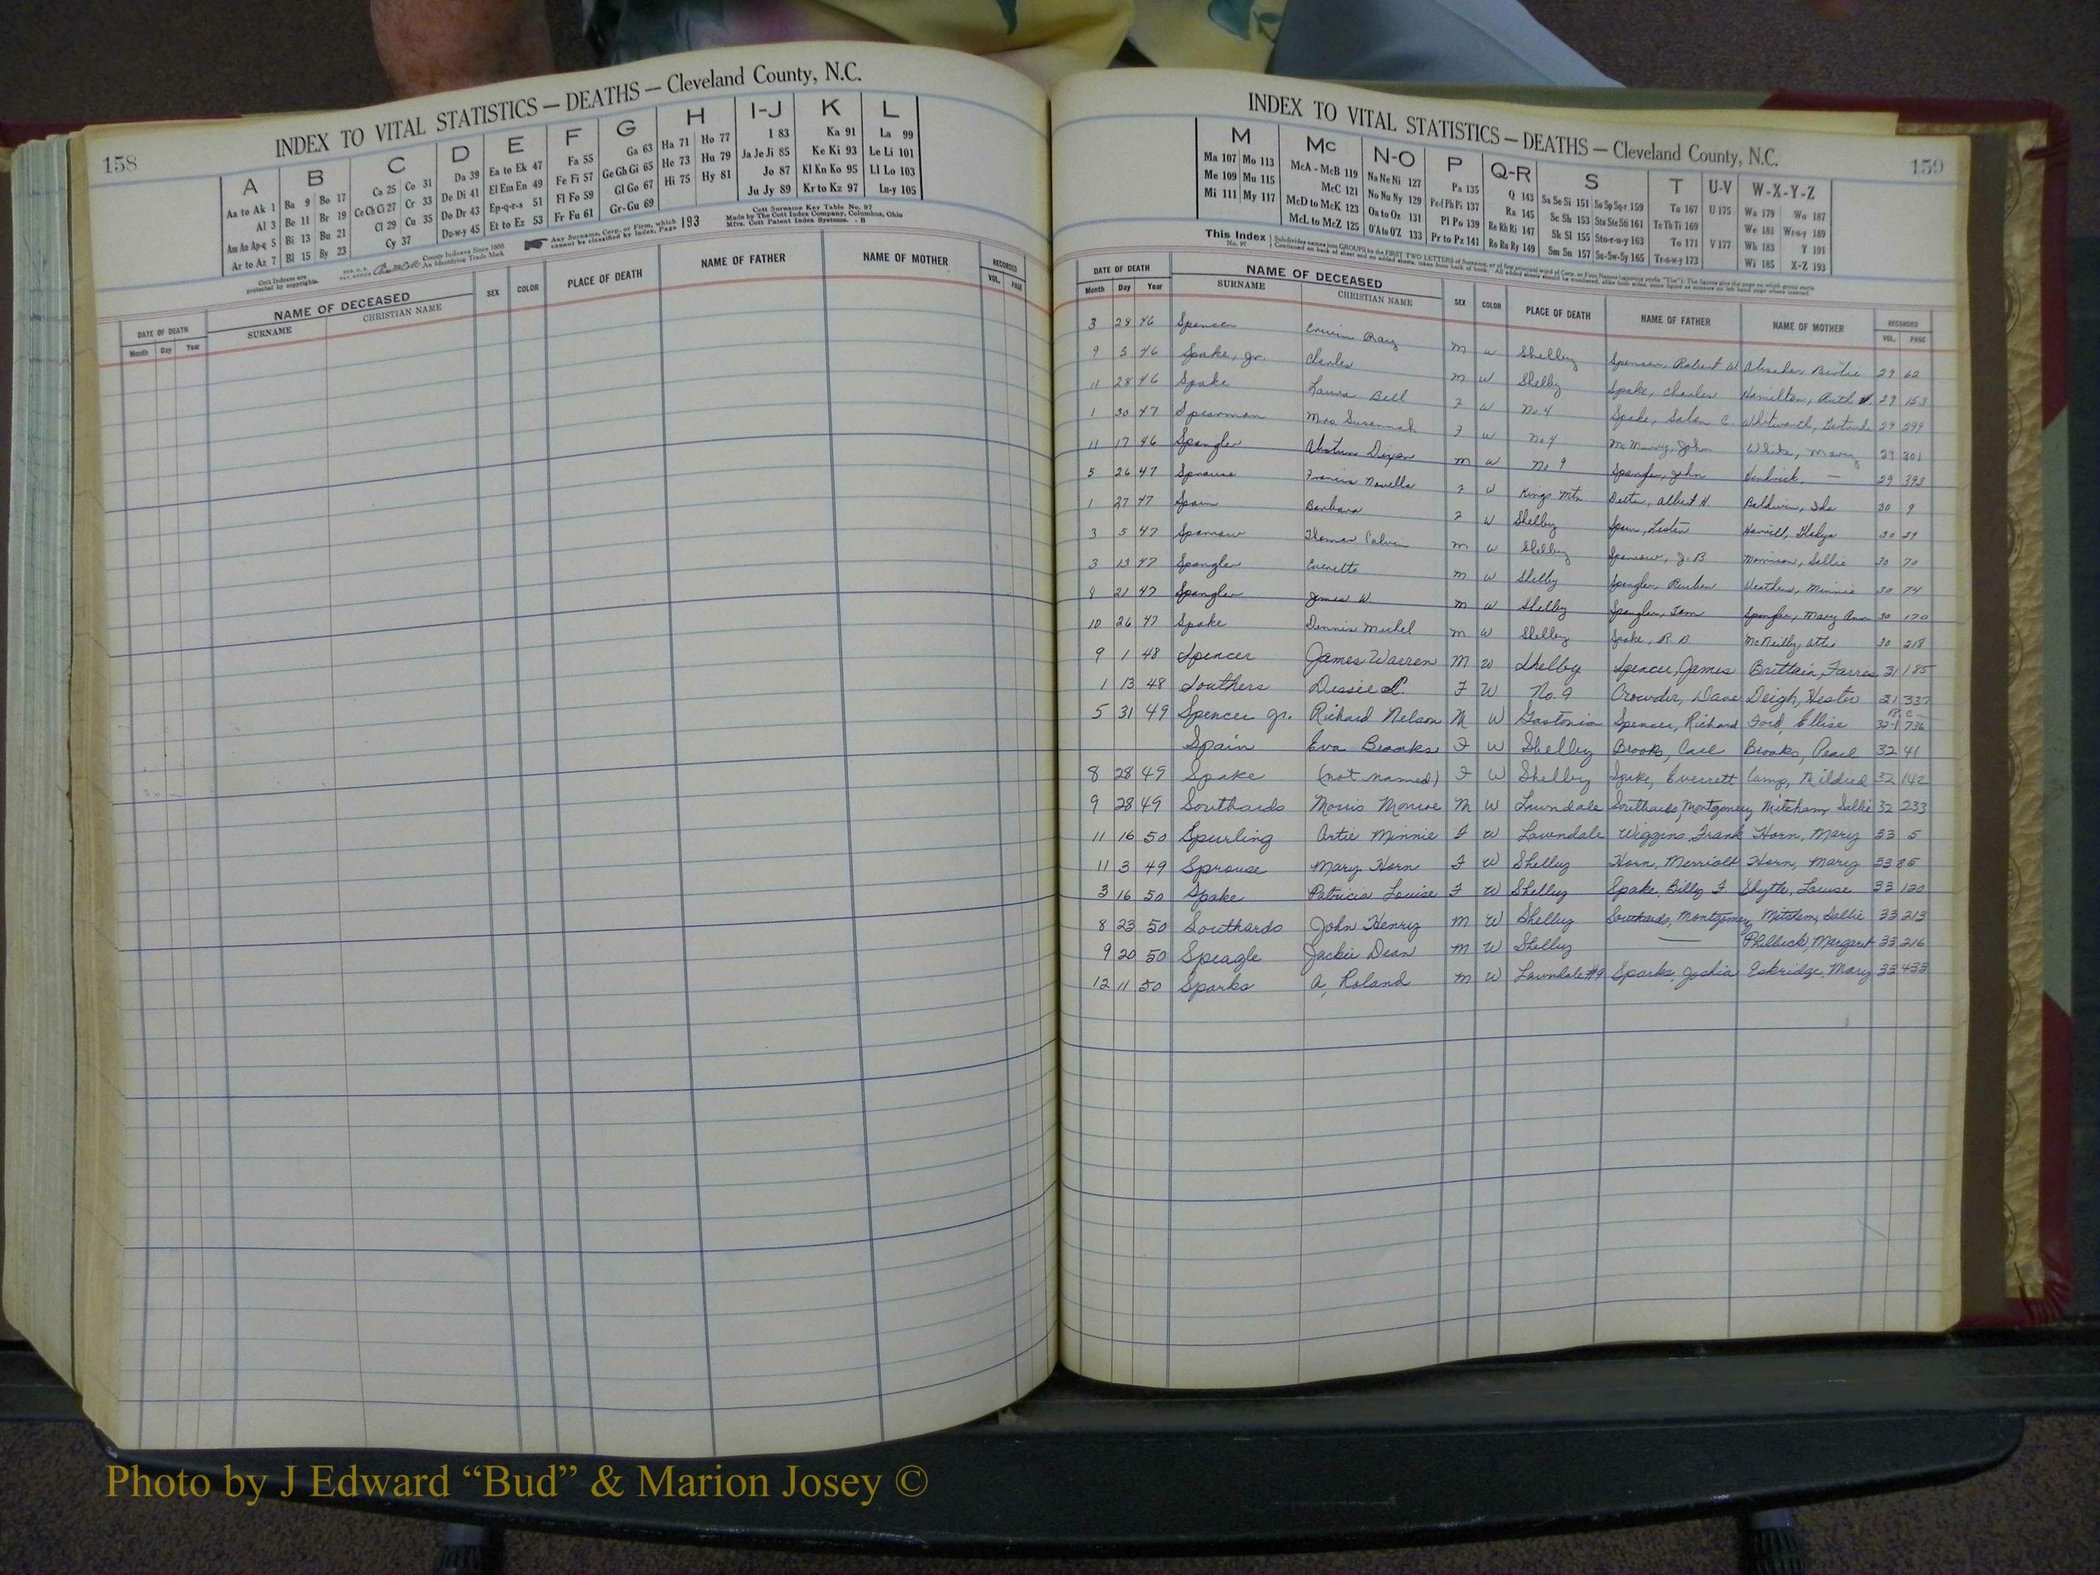 158
INDEX TO VITAL STATISTICS — DEATHS — Cleveland County, N.C.
A B C D E F G H I-J K L
Aa to Ak 1 Ba 9 Bo 17 Ca 25 Co 31 Da 39 Ea to Ek 47 Fa 55 Ga 63 Ha 71 Ho 77 I 83 Ka 91 La 99
Al 3 Be 11 Br 19 Ce Ch Ci 27 Cr 33 De Di 41 El Em En 49 Fe Fi 57 Ge Gh Gi 65 He 73 Hu 79 Ja Je Ji 85 Ke Ki 93 Le Li 101
Am An Ap-q 5 Bi 13 Bu 21 Cl 29 Cu 35 Do Dr 43 Ep-q-r-s 51 Fl Fo 59 Gl Go 67 Hi 75 Hy 81 Jo 87 Kl Kn Ko 95 Ll Lo 103
Ar to Az 7 Bl 15 By 23 Cy 37 Du-w-y 45 Et to Ez 53 Fr Fu 61 Gr-Gu 69 Ju Jy 89 Kr to Kz 97 Lu-y 105
Cott Indexes are protected by copyrights.
County Indexes Since 1888
An Identifying Trade Mark
Any Surname, Corp. or Firm, which cannot be classified by Index, Page 193
Cott Surname Key Table No. 97
Made by The Cott Index Company, Columbus, Ohio
Mfrs. Cott Patent Index Systems. - B
DATE OF DEATH NAME OF DECEASED SEX COLOR PLACE OF DEATH NAME OF FATHER NAME OF MOTHER RECORDED
Month Day Year SURNAME CHRISTIAN NAME VOL. PAGE
159
INDEX TO VITAL STATISTICS — DEATHS — Cleveland County, N.C.
M Mc N-O P Q-R S T U-V W-X-Y-Z
Ma 107 Mo 113 McA - McB 119 Na Ne Ni 127 Pa 135 Q 143 Sa Se Si 151 So Sp Sq-r 159 Ta 167 U 175 Wa 179 Wo 187
Me 109 Mu 115 McC 121 No Nu Ny 129 Pe-f Ph Pi 137 Ra 145 Sc Sh 153 Sta Ste Sti 161 Te Th Ti 169 We 181 Wr-u-y 189
Mi 111 My 117 McD to McK 123 Oa to Oz 131 Pl Po 139 Re Rh Ri 147 Sk Sl 155 Sto-r-u-y 163 To 171 V 177 Wh 183 Y 191
McL to McZ 125 O'A to O'Z 133 Pr to Pz 141 Ro Ru Ry 149 Sm Sn 157 Su-Sw-Sy 165 Tr-u-w-y 173 Wi 185 X-Z 193
This Index No. 97
DATE OF DEATH NAME OF DECEASED SEX COLOR PLACE OF DEATH NAME OF FATHER NAME OF MOTHER RECORDED
Month Day Year SURNAME CHRISTIAN NAME VOL. PAGE
3 28 46 Spencer Ervin Ray M W Shelby Spencer, Robert W. Bertie 29 62
9 5 46 Spake, Jr. Charles M W Shelby Spake, Charles Hamilton, Ruth 29 153
11 28 46 Spake Laura Bell F W No 4 Spake, C. Whitworth, Gertrude 29 299
1 30 47 Spearman Mrs. Susannah F W No 4 McMurry, John White, Mary 29 301
11 17 46 Spangler Dixon M W No 9 Spangler, John Hendrick, — 29 393
5 26 47 Sprouse Frances Novella F W Kings Mtn Albert H. Baldwin, Ida 30 9
1 27 47 Spain Barbara F W Shelby Spain, Lester Gladys 30 29
3 5 47 Sparrow Thomas Calvin M W Shelby Sparrow, J. B Morrison, Sallie 30 70
3 13 47 Spangler Everette M W Shelby Spangler, Reuben Weathers, Minnie 30 74
9 21 47 Spangler James W. M W Shelby Spangler, Tom Spangler, Mary Ann 30 170
10 26 47 Spake Dennis Michel M W Shelby Spake, R B McNeilly, 30 218
9 1 48 Spencer James Warren M W Shelby Spencer, James Brittain, Farres 31 185
1 13 48 Southers Dessie L. F W No. 9 Crowder, Dave Deigh, Hester 31 337
5 31 49 Spencer Jr. Richard Nelson M W Gastonia Spencer, Richard Ford, Ellise 32-1 736
Spain Eva Brooks F W Shelby Brooks, Carl Brooks, Pearl 32 41
8 28 49 Spake (not named) F W Shelby Spake, Everrett Camp, Mildred 32 142
9 28 49 Southards Morris Monroe M W Lawndale Southards, Montgomery Mitcham, Sallie 32 233
11 16 50 Spurling Artie Minnie F W Lawndale Wiggins, Frank Horn, Mary 33 5
11 3 49 Sprouse Mary Horn F W Shelby Horn, Horn, Mary 33 85
3 16 50 Spake Patricia Louise F W Shelby Spake, Billy F Blyth, Louise 33 120
8 23 50 Southards John Henry M W Shelby Southards, Montgomery Mitchem, Sallie 33 213
9 20 50 Speagle Jackie Dean M W Shelby — Philbeck, Margaret 33 216
12 11 50 Sparks A. Roland M W Lawndale #9 Sparks, Joshia Eskridge, Mary 33 433
Photo by J Edward “Bud” & Marion Josey ©